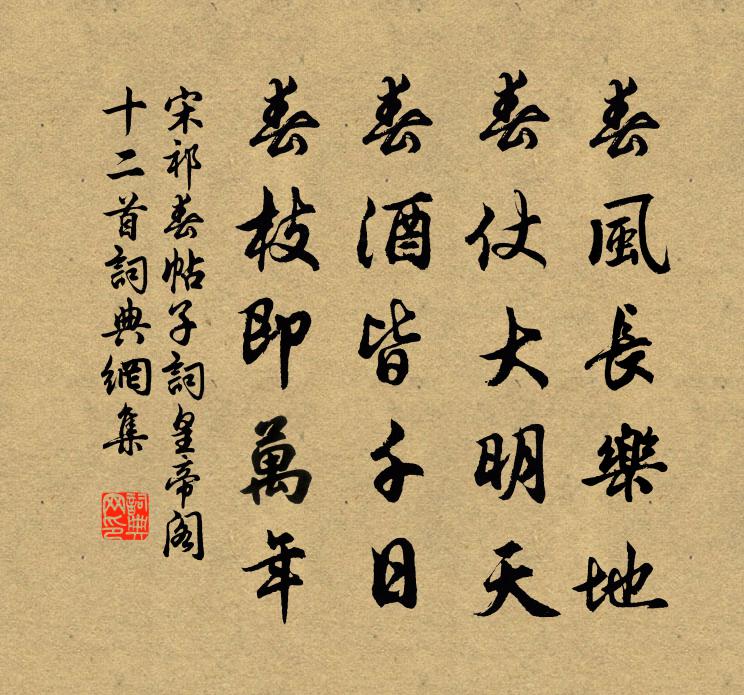 春風長樂地
春仗大明天
春酒皆千日
春枝即萬年
宋祁春帖子詞皇帝閣
十二首詞典網集
詞典
网印